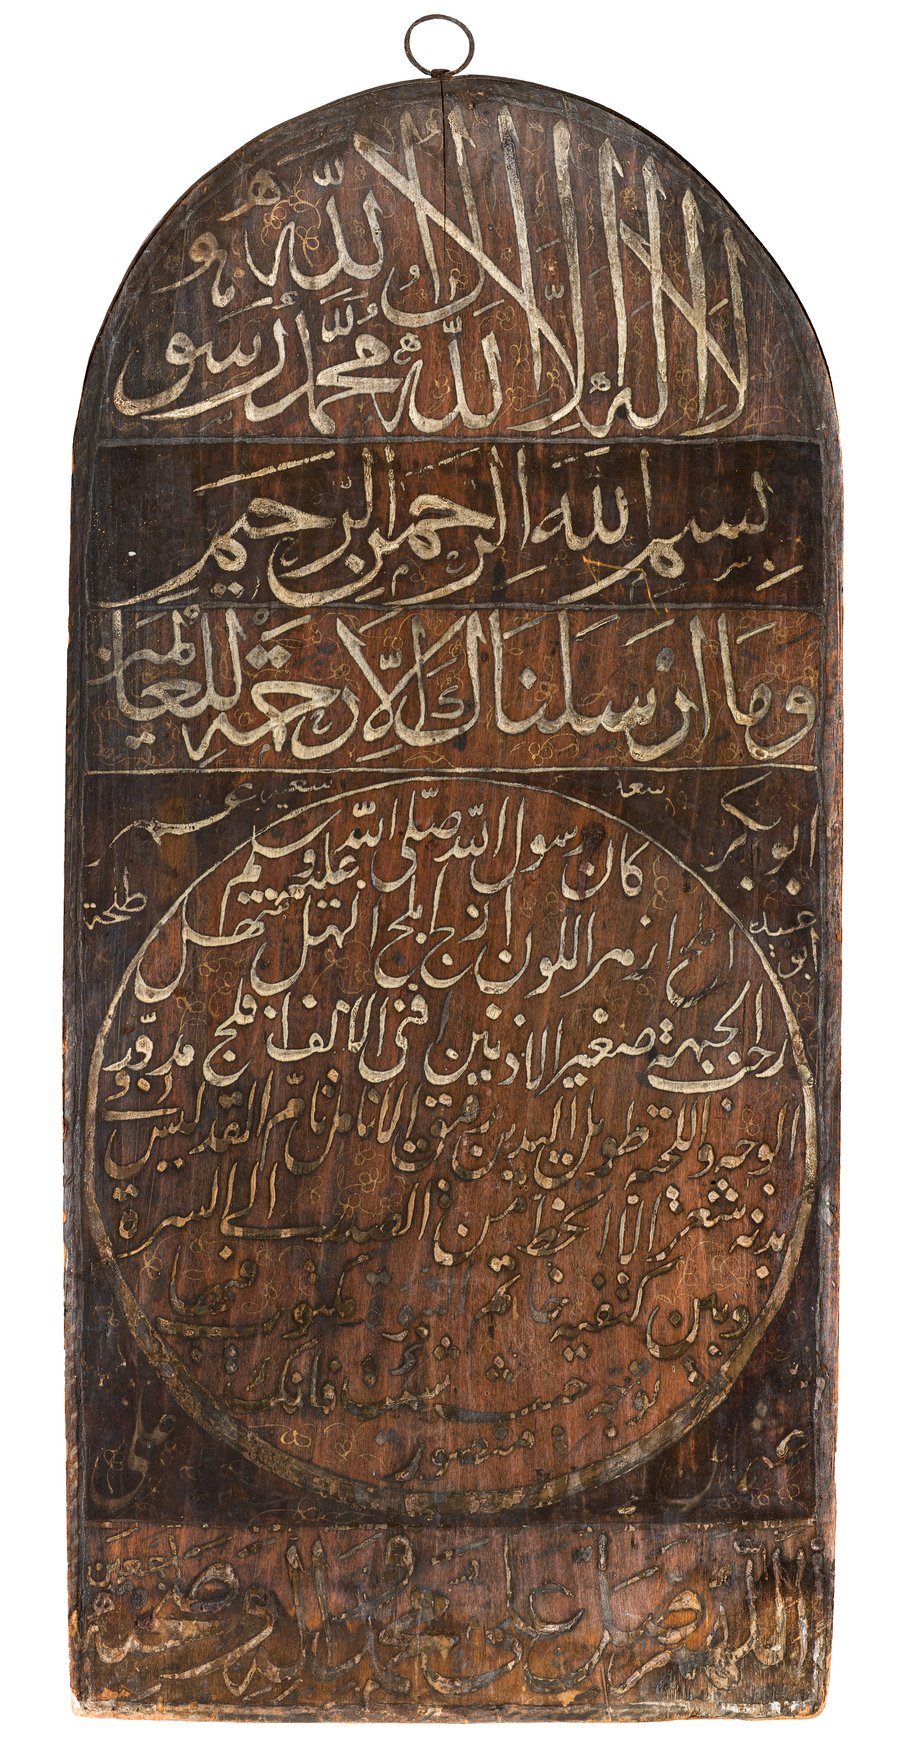 لا اله الا الله محمد رسول الله
بسم الله الرحمن الرحيم
وما ارسلناك الا رحمة للعالمين
ابو بكر
سعد
سعيد
عمر
طلحة
كان رسول الله صلى الله عليه وسلم
ازهر اللون ازج ابلج
الجبهة صغير الاذنين اقنى الانف افلج مدور
الوجه واللحية طويل اليدين رقيق الانامل تام القد ليس في
بدنه شعر الا الخط من الصدر الى السرة
وبين كتفيه خاتم النبوة مكتوب فيها
توجه حيث شئت فانك
منصور
علي
اللهم صل على محمد وآله وصحبه اجمعين